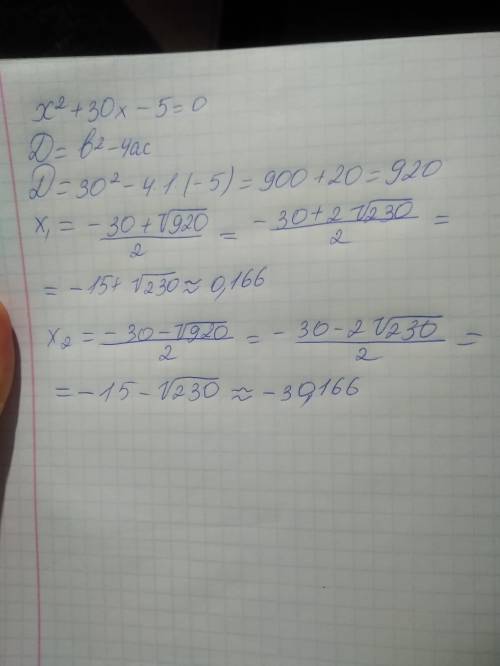 x² + 30x − 5 = 0
D = b² − 4ac
D = 30² − 4·1·(−5) = 900 + 20 = 920
x₁ = −30 + √920 / 2 = −30 + 2√230 / 2 =
= −15 + √230 ≈ 0,166
x₂ = −30 − √920 / 2 = −30 − 2√230 / 2 =
= −15 − √230 ≈ −30,166